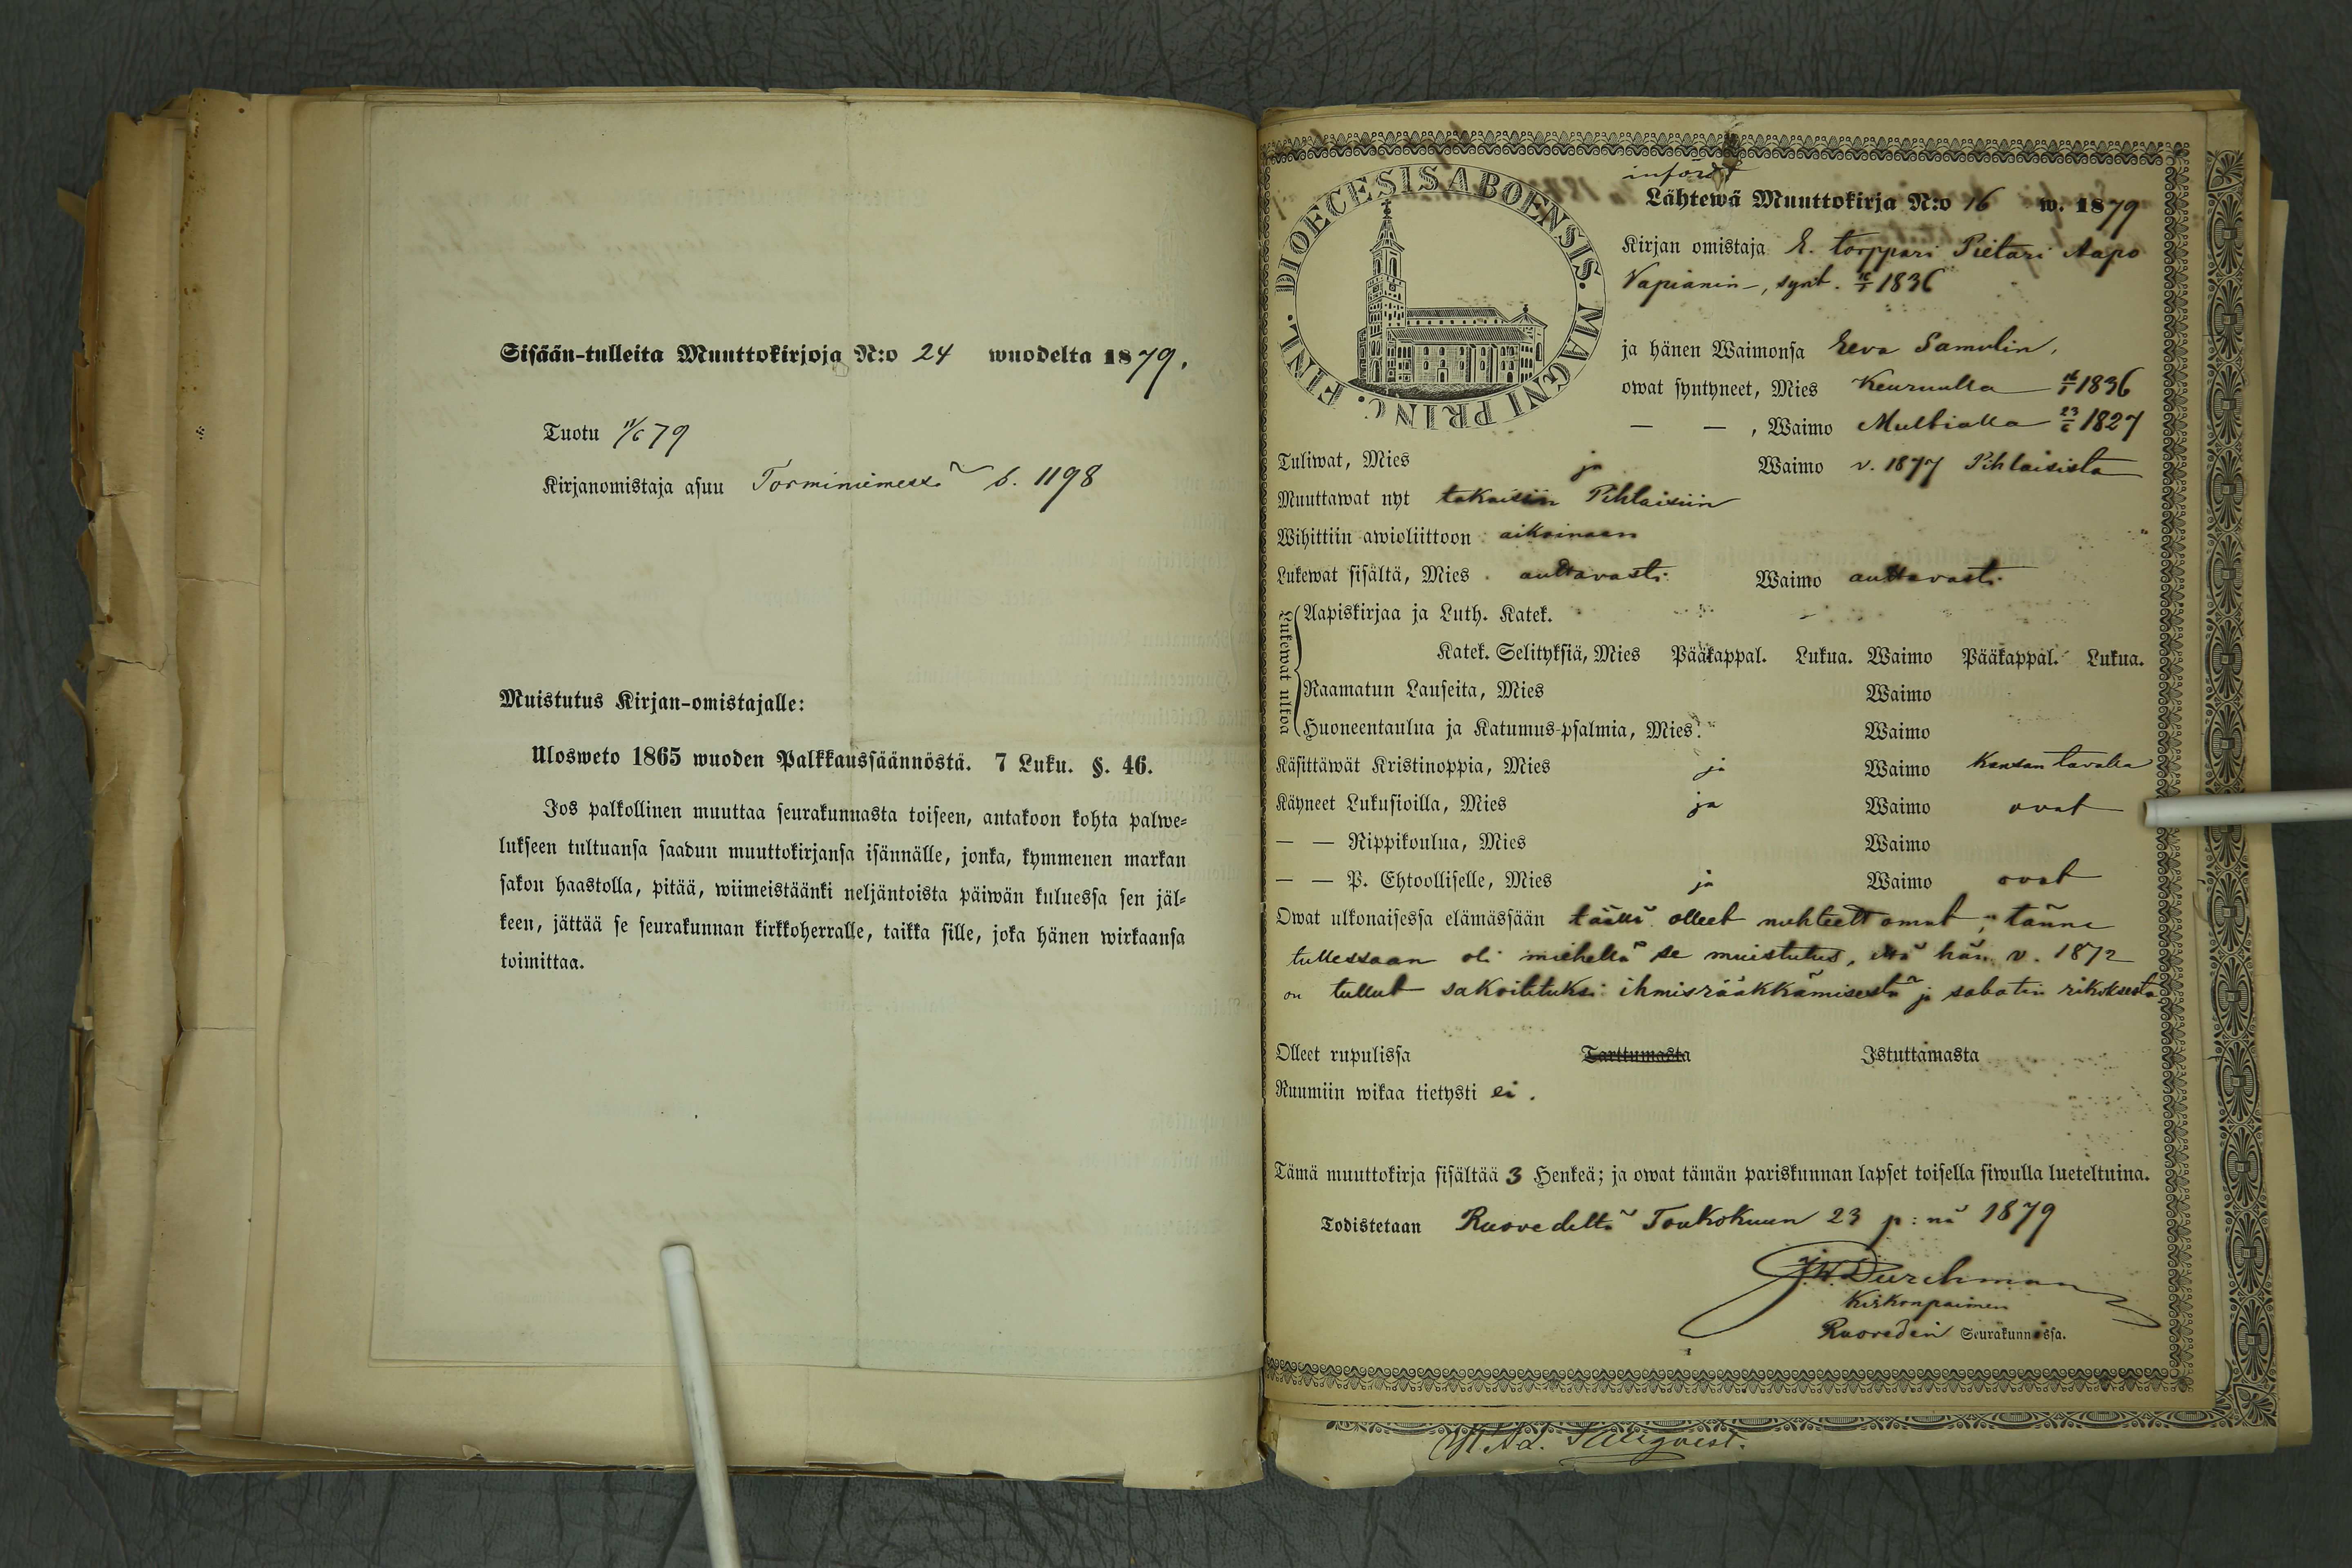 Sisään-tulleita Muuttokirjoja N:o 24 wuodelta 1879.
Tuotu 11/6 79
Kirjanomistaja asuu Torminiemessä s. 1198
Muistutus Kirjan-omistajalle:
Ulosweto 1865 wuoden Palkkaussäännöstä. 7 Luku. §. 46.
Jos palkollinen muuttaa seurakunnasta toiseen, antakoon kohta palwe-
lukseen tultuansa saadun muuttokirjansa isännälle, jonka, kymmenen markan
sakon haastolla, pitää, wiimeistäänki neljäntoista päiwän kuluessa sen jäl-
keen, jättää se seurakunnan kirkkoherralle, taikka sille, joka hänen wirkaansa
toimittaa.
DIOECESIS ABOENSIS. MAGNI PRINC. FINL.
införd
Lähtewä Muuttokirja N:o 16 w. 1879
Kirjan omistaja E. torppari Pietari Aapo
Vapianin, synt. 16/1 1836
ja hänen Waimonsa Eeva Samulin.
owat syntyneet, Mies Keuruulla 16/1 1836
— — , Waimo Multialla 23/6 1827
Tuliwat, Mies ja Waimo v. 1877 Pihlaisista
Muuttawat nyt takaisin Pihlaisiin
Wihittiin awioliittoon aikoinaan
Lukewat sisältä, Mies auttavasti Waimo auttavasti
Lukewat ulkoa
Aapiskirjaa ja Luth. Katek.
Katek. Selityksiä, Mies Pääkappal. Lukua. Waimo Pääkappal. Lukua.
Raamatun Lauseita, Mies Waimo
Huoneentaulua ja Katumus-psalmia, Mies. Waimo
Käsittäwät Kristinoppia, Mies ja Waimo Kansan tavalla
Käyneet Lukusioilla, Mies ja Waimo ovat
— — Rippikoulua, Mies Waimo
— — P. Ehtoolliselle, Mies ja Waimo ovat
Owat ulkonaisessa elämässään täällä olleet nuhteettomat; tänne
tullessaan oli miehellä se muistutus, että hän v. 1872
on tullut sakoitetuksi ihmisrääkkämisestä ja sabatin rikoksesta
Olleet rupulissa Tarttumasta Istuttamasta
Ruumiin wikaa tietysti ei.
Tämä muuttokirja sisältää 3 Henkeä; ja owat tämän pariskunnan lapset toisella siwulla lueteltuina.
Todistetaan Ruovedeltä Toukokuun 23 p:nä 1879
J.W. Durchman
Kirkonpaimen
Ruoveden Seurakunnassa.